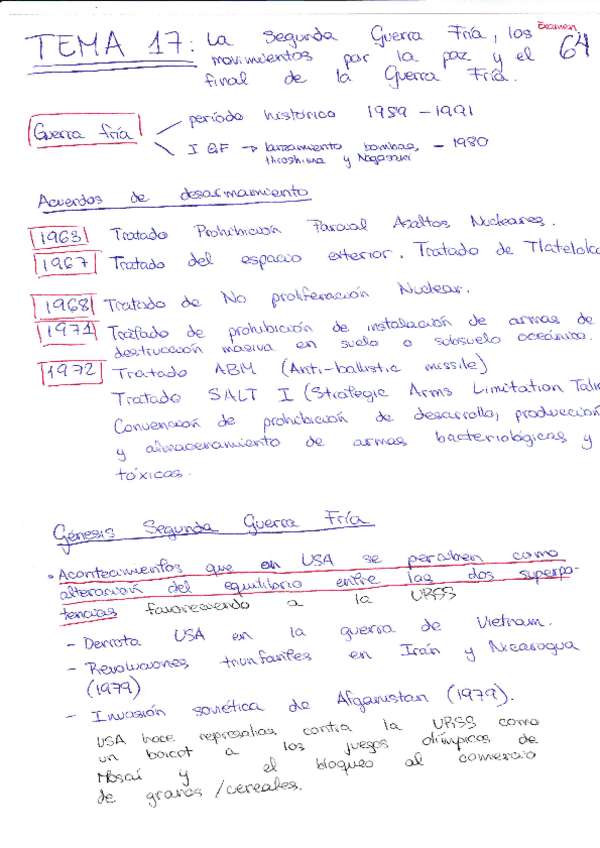 TEMA 17: La Segunda Guerra Fría, los
movimientos por la paz y el
final de la Guerra Fría.
Examen
64
Guerra fría
período histórico 1989 - 1991
I GF → lanzamiento bombas, - 1980
Hiroshima y Nagasaki
Acuerdos de desarmamiento
1963 Tratado Prohibición Parcial Asaltos Nucleares.
1967 Tratado del espacio exterior. Tratado de Tlatelolco
1968 Tratado de No proliferación Nuclear.
1971 Tratado de prohibición de instalación de armas de
destrucción masiva en suelo o subsuelo oceánico.
1972 Tratado ABM (Anti-ballistic missile)
Tratado SALT I (Strategic Arms Limitation Talk
Convención de prohibición de desarrollo, producción
y almacenamiento de armas bacteriológicas y
tóxicas.
Génesis Segunda Guerra Fría
• Acontecimientos que en USA se perciben como
alteración del equilibrio entre las dos superpo-
tencias favoreciendo a la URSS
- Derrota USA en la guerra de Vietnam.
- Revoluciones triunfantes en Irán y Nicaragua
(1979)
- Invasión soviética de Afganistan (1979).
USA hace represalias contra la URSS como
un boicot a los juegos olímpicos de
Moscú y el bloqueo al comercio
de granos / cereales.